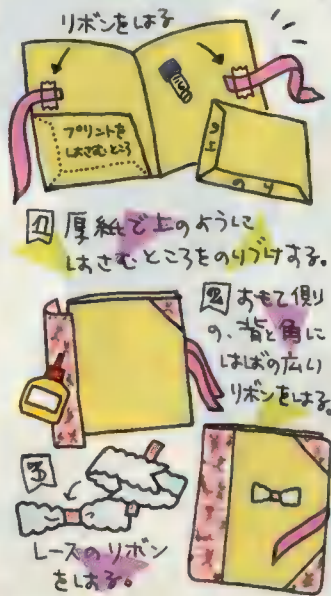 リボンをはる
プリントを
はさむところ
のり
のり
1 厚紙で上のように
はさむところをのりづけする。
2 おもて側
の、背と角に
はばの広い
リボンをはる
3
レースのリボン
をはる。